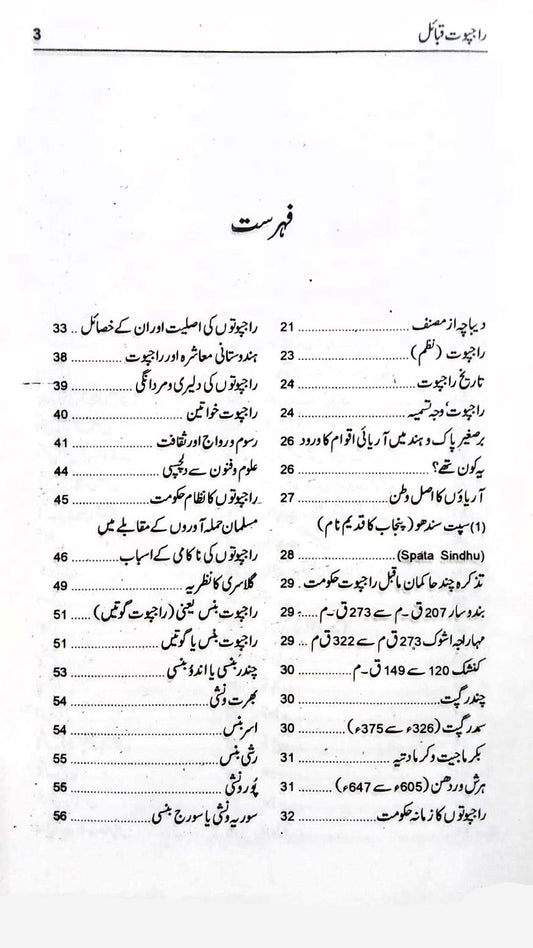 راجپوت قبائل
3
فہرست
دیباچہ از مصنف ........................ 21
راجپوت (نظم) ........................ 23
تاریخ راجپوت ........................ 24
راجپوت وجہ تسمیہ ........................ 24
برصغیر پاک و ہند میں آریائی اقوام کا ورود 26
یہ کون تھے؟ ........................ 26
آریاؤں کا اصل وطن ........................ 27
(1) سپت سندھو (پنجاب کا قدیم نام)
(Spata Sindhu) ........................ 28
تذکرہ چند حاکمان ماقبل راجپوت حکومت . 29
بندوسار 207 ق-م سے 273 ق-م ..... 29
مہاراجہ اشوک 273 ق م سے 322 ق م ... 29
کنشک 120 سے 149 ق-م ............ 30
چندر گپت ........................ 30
سمدر گپت (326ء سے 375ء) ............ 30
بکرماجیت وکرمادتیہ ........................ 31
ہرش وردھن (605ء سے 647ء) ......... 31
راجپوتوں کا زمانہ حکومت ........................ 32
راجپوتوں کی اصلیت اور ان کے خصائل .. 33
ہندوستانی معاشرہ اور راجپوت ............... 38
راجپوتوں کی دلیری و مردانگی ............... 39
راجپوت خواتین ........................ 40
رسوم و رواج اور ثقافت ........................ 41
علوم و فنون سے دلچسپی ........................ 44
راجپوتوں کا نظام حکومت ........................ 45
مسلمان حملہ آوروں کے مقابلے میں
راجپوتوں کی ناکامی کے اسباب ............ 46
گلاسری کا نظریہ ........................ 49
راجپوت بنس یعنی (راجپوت گوتیں) ...... 51
راجپوت بنس یا گوتیں ........................ 51
چندر بنسی یا اندو بنسی ........................ 53
بھرت ونشی ........................ 54
اسر بنس ........................ 54
رشی بنس ........................ 55
پورو ونشی ........................ 56
سوریہ ونشی یا سورج بنسی ............... 56